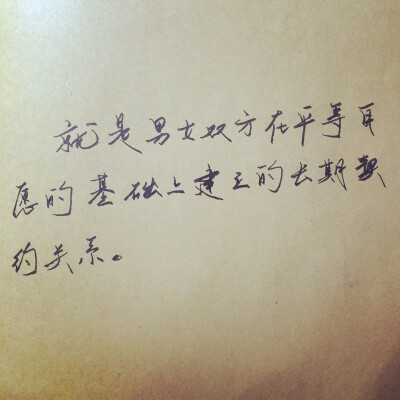 就是男女双方在平等自
愿的基础上建立的长期契
约关系。